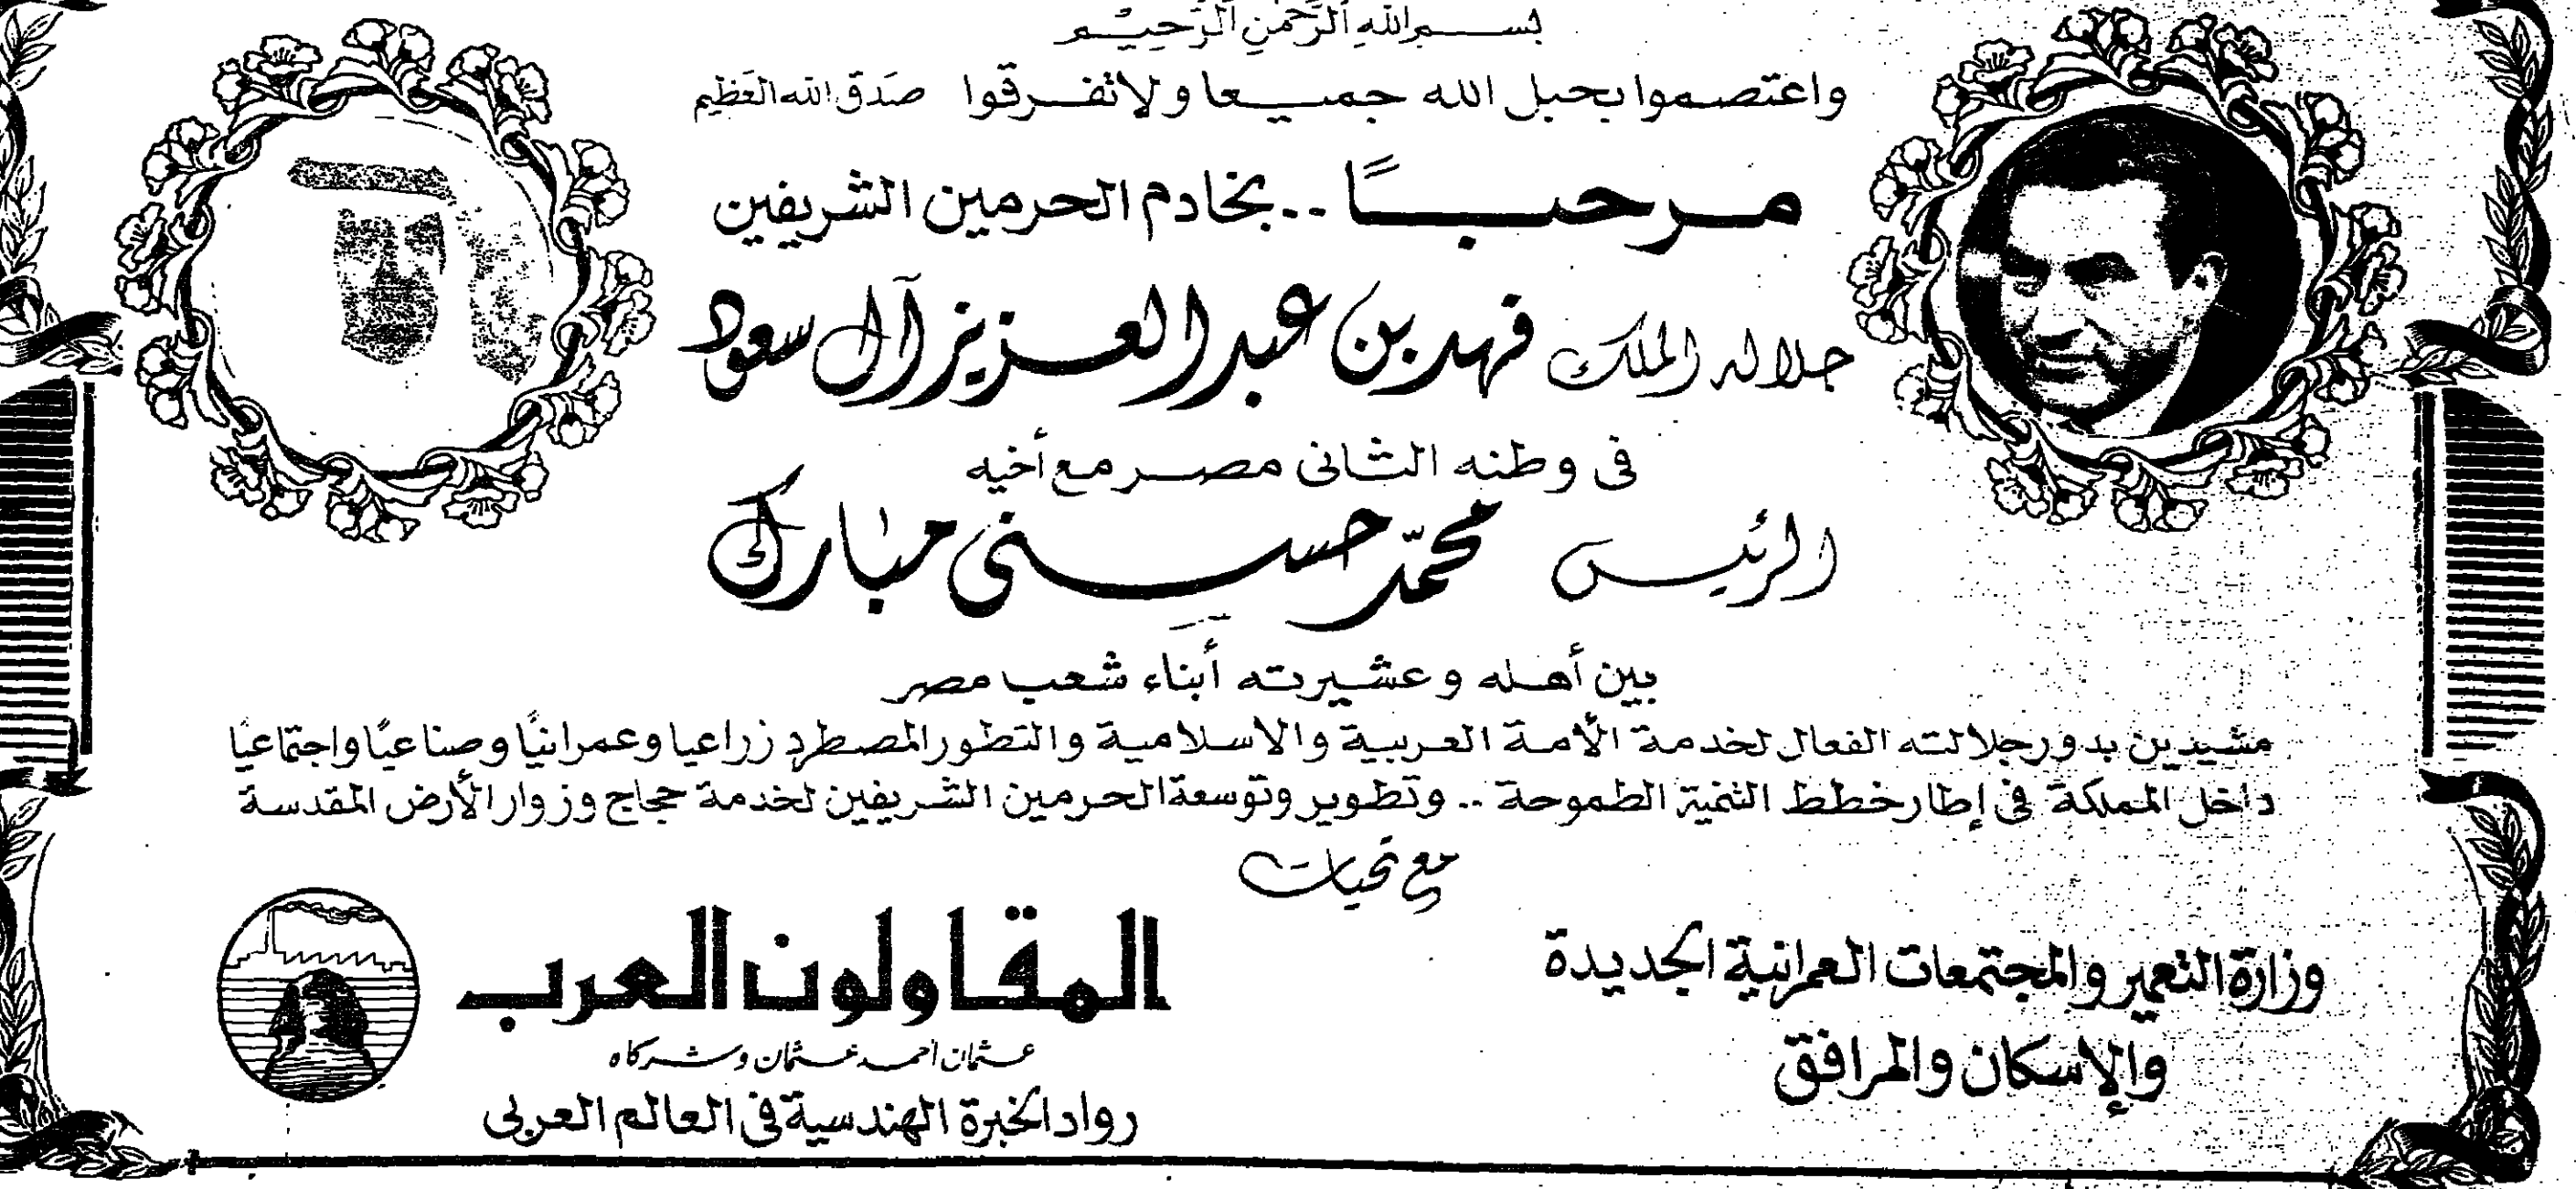 بسم الله الرحمن الرحيم
واعتصموا بحبل الله جميعا ولا تفرقوا صَدَقَ الله العَظِيم
مرحبًا .. بخادم الحرمين الشريفين
جلالة الملك فهد بن عبد العزيز آل سعود
فى وطنه الثانى مصر مع أخيه
الرئيس محمّد حسنى مبارك
بين أهله وعشيرته أبناء شعب مصر
مشيدين بدور جلالته الفعال لخدمة الأمة العربية والاسلامية والتطور المضطرد زراعيا وعمرانيًا وصناعيًا واجتماعيًا
داخل المملكة فى إطار خطط التنمية الطموحة .. وتطوير وتوسعة الحرمين الشريفين لخدمة حجاج وزوار الأرض المقدسة
مع تحيات
وزارة التعمير والمجتمعات العمرانية الجديدة
والإسكان والمرافق
المقاولون العرب
عثمان احمد عثمان وشركاه
رواد الخبرة الهندسية فى العالم العربى